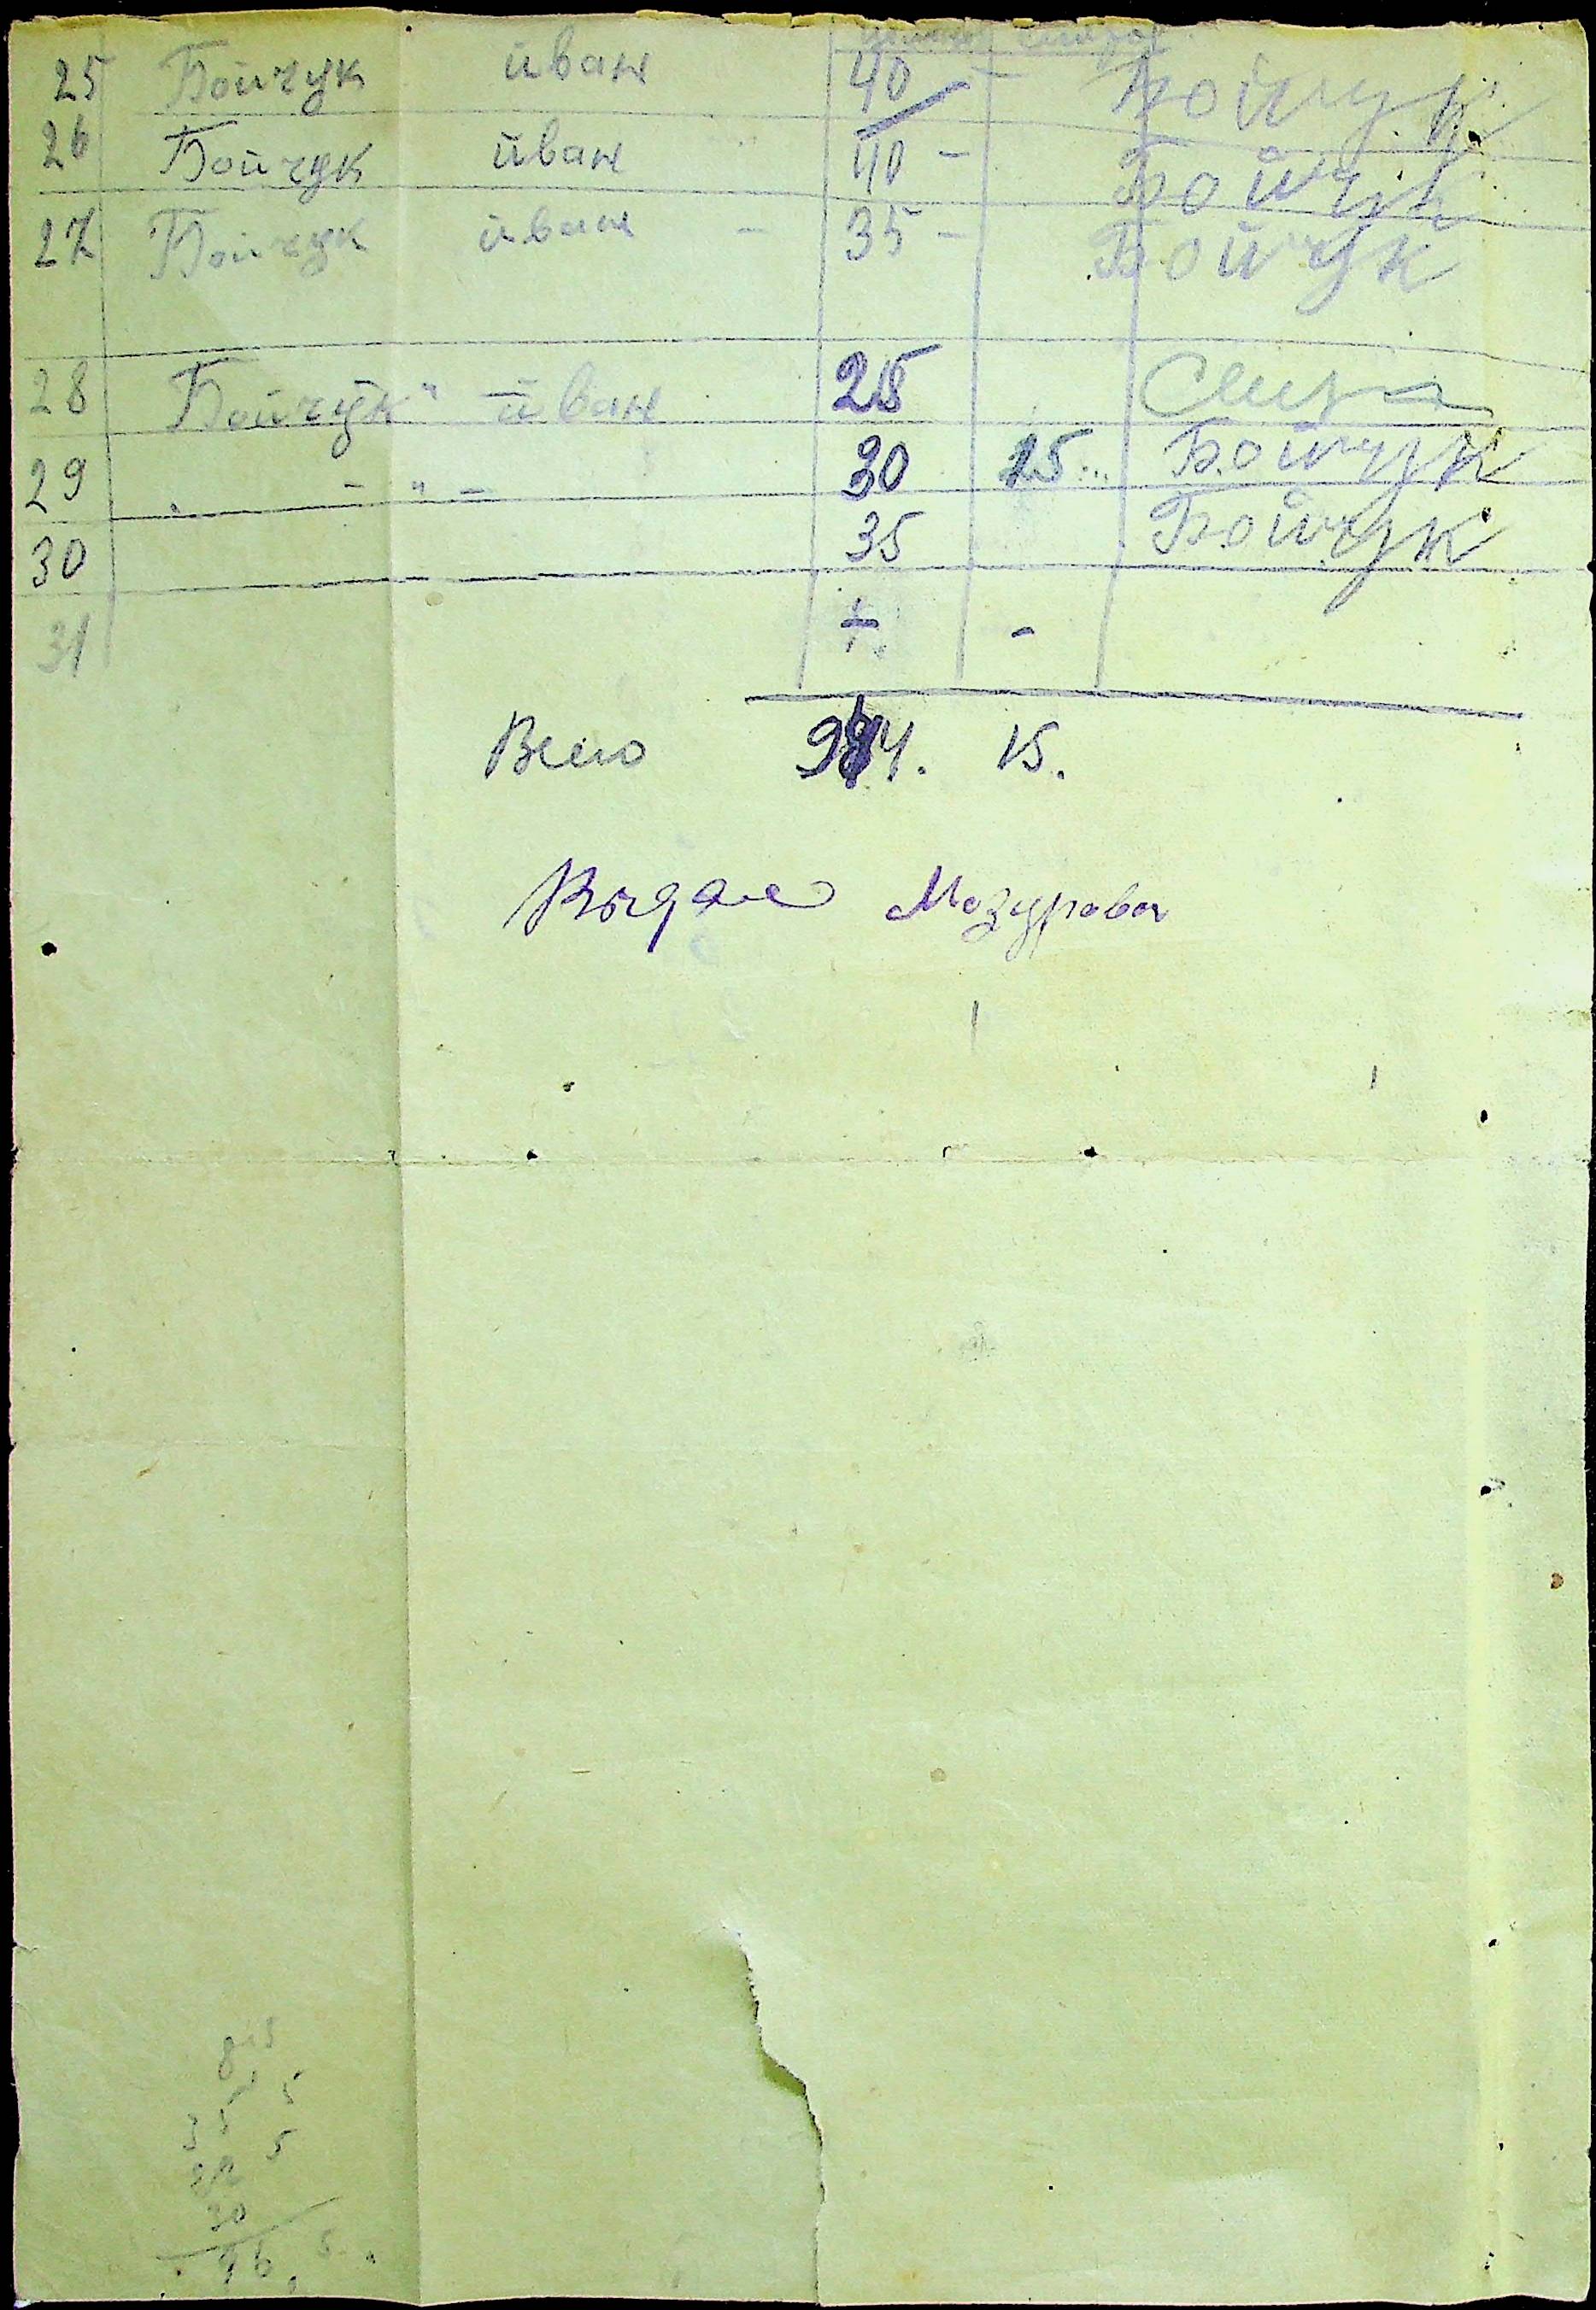 25 Бойчук иван 40 - Бойчук
26 Бойчук иван 40 - Бойчук
27 Бойчук иван - 35 - Бойчук
28 Бойчук иван 25
29 - " - 30 15 Бойчук
30 35 Бойчук
31 -
Всего 15.
Мозуровой
35 5
5
30